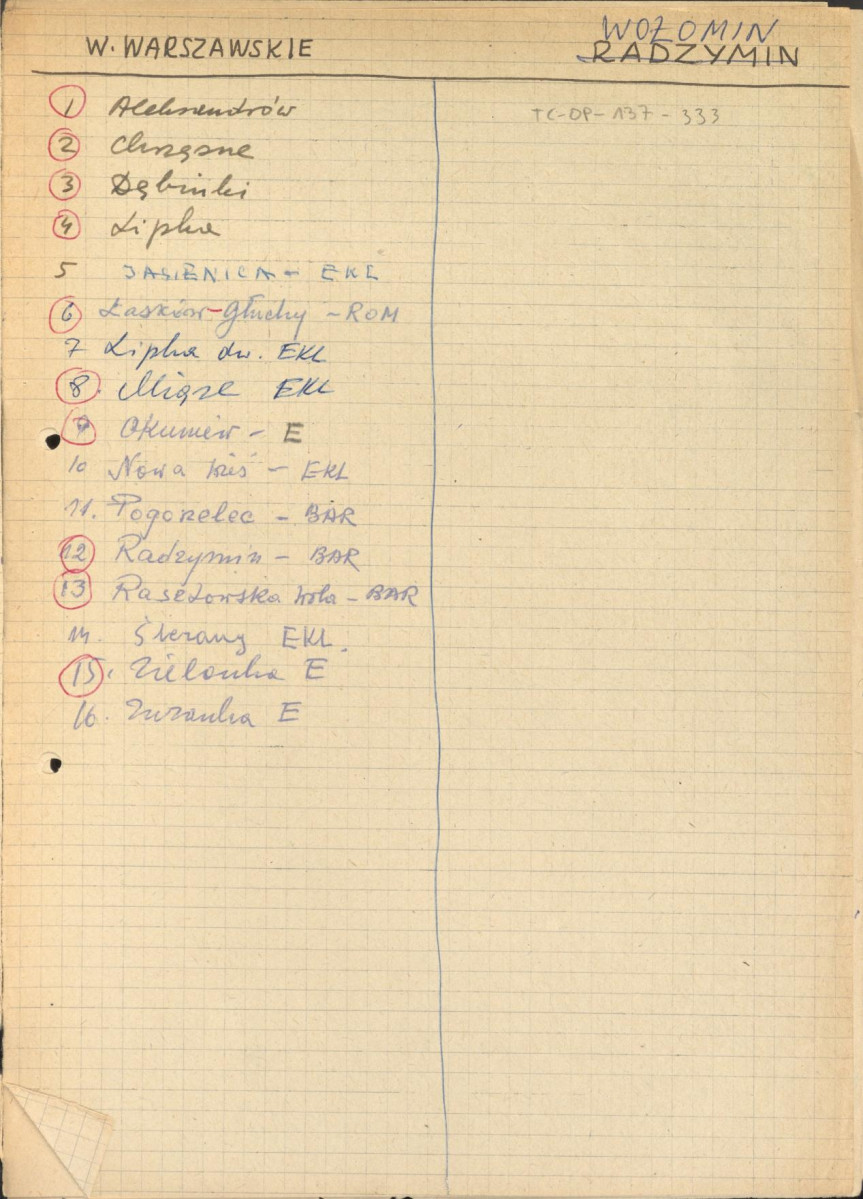 W. WARSZAWSKIE
WOŁOMIN
RADZYMIN
TC-DP-137-333
1 Aleksandrów
2 Chrzęsne
3 Dąbinki
4 Lipka
5 JASIENICA - EKL
6 Łasków-Głuchy - ROM
7 Lipka dw. EKL
8. Miąse EKL
9 Okuniew - E
10 Nowa Wieś - EKL
11. Pogorzelec - BAR
12 Radzymin - BAR
13 Raszewska Wola - BAR
14. EKL.
15. Zielonka E
16. Zuzanka E